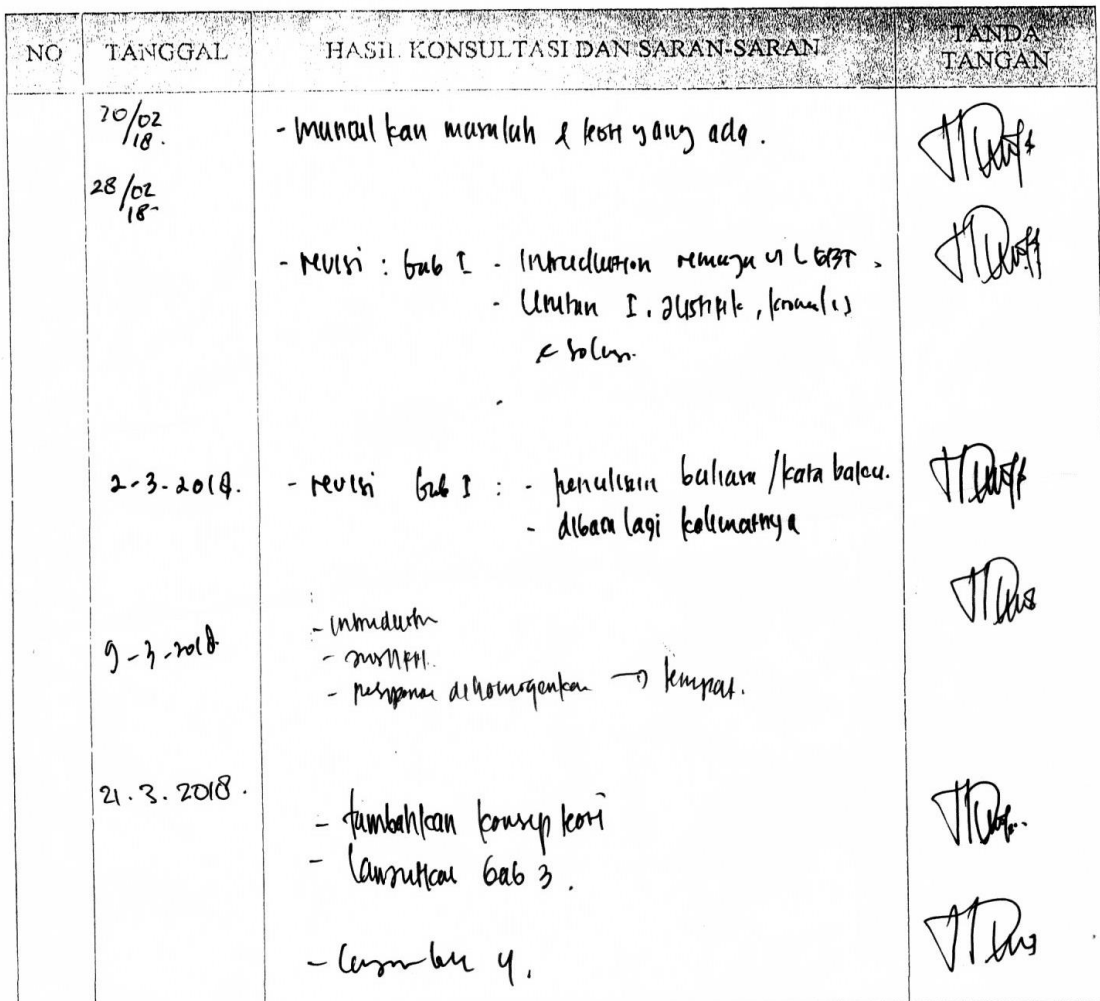 NO TANGGAL HASIL KONSULTASI DAN SARAN-SARAN TANDA TANGAN
20/02 18. - munculkan masalah & teori yang ada.
28/02 18-
- revisi : bab I - Introduction remaja vs LGBT.
- Urutan I. Justifik, kronologis
& solusi.
2-3-2018. - revisi bab I : - penulisan bahasa/kata baku.
- dibaca lagi kalimatnya
- introduction
9-3-2018 - justifik.
- responden dihomogenkan → tempat.
21.3.2018. - tambahkan konsep teori
- lanjutkan bab 3.
- 4.